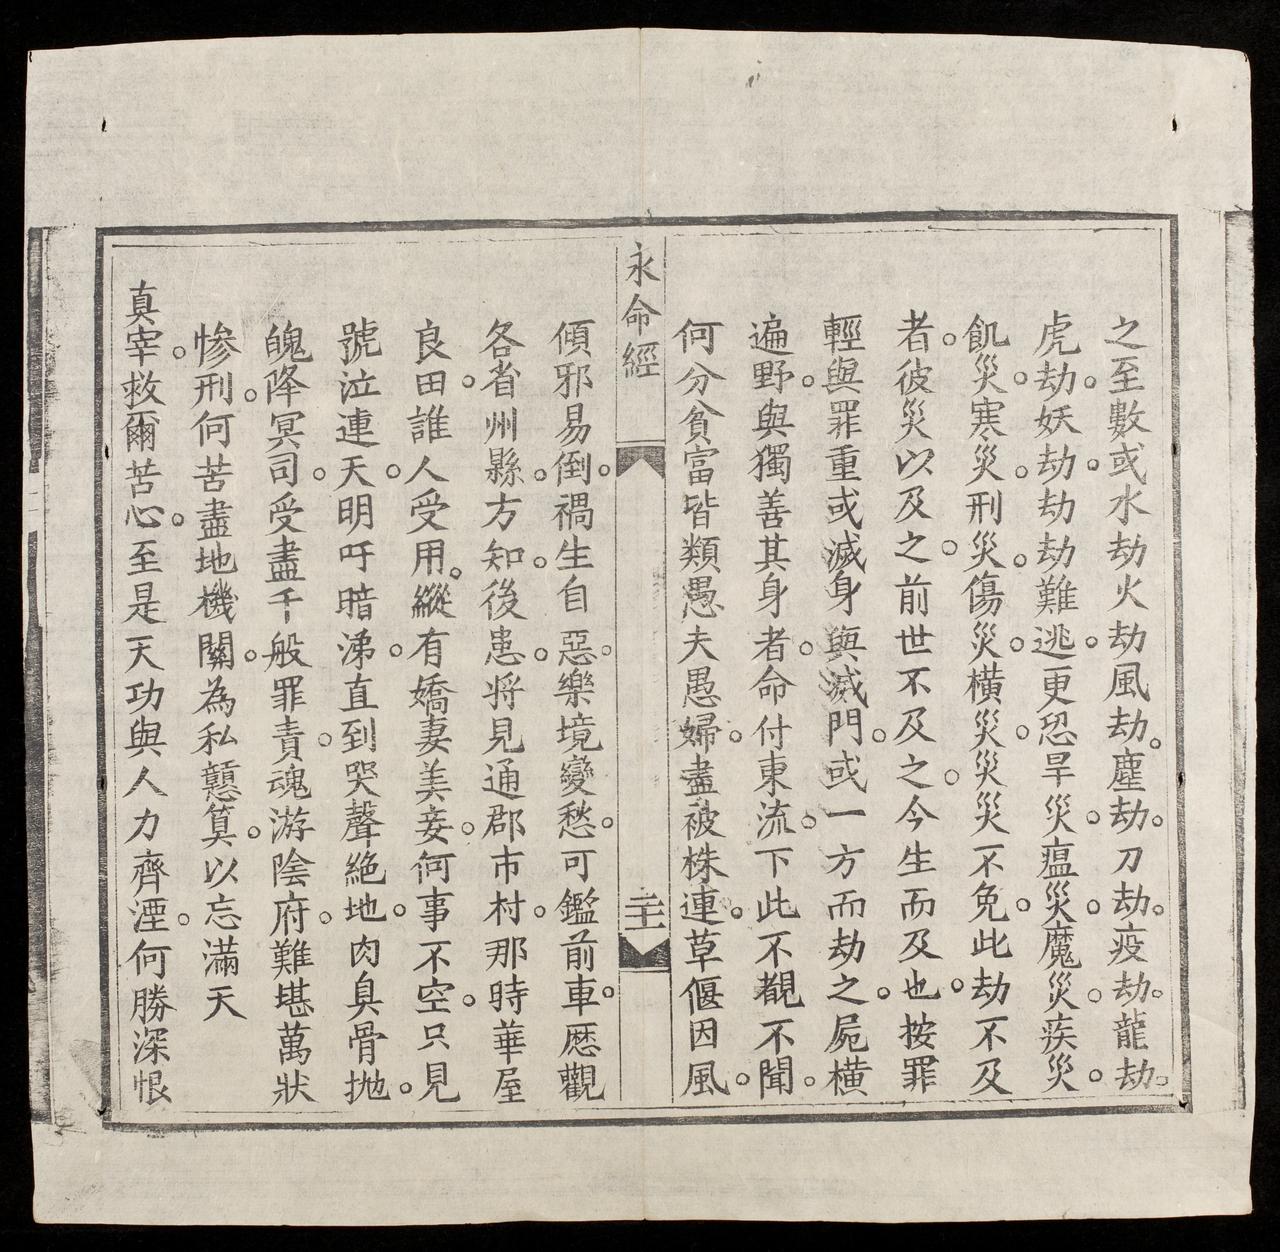 之至數或水劫火劫風劫。塵劫。刀劫。疫劫。龍劫。
虎劫。妖劫。劫劫難逃。更恐旱災。瘟災。魔災。疾災。
飢災。寒災。刑災。傷災。橫災。災災不免。此劫不及
者。彼災以及之。前世不及之。今生而及也。按罪
輕與罪重或滅身與滅門。或一方而劫之。屍橫
遍野。與獨善其身者。命付東流。下此不覩不聞。
何分貧富皆類愚夫愚婦。盡被株連。草偃因風。
永命經
二十
傾邪易倒。禍生自惡。樂境變愁。可鑑前車。歷觀
各省州縣。方知。後患。將見通郡市村。那時華屋
良田。誰人受用。縱有嬌妻美妾。何事不空。只見
號泣連天。明吁暗涕。直到哭聲絕地。肉臭骨拋。
魄降冥司。受盡千般罪責。魂游陰府。難堪萬狀
慘刑。何苦盡地機關。為私戇算。以忘滿天
真宰。救爾苦心。至是天功與人力齊湮。何勝深恨